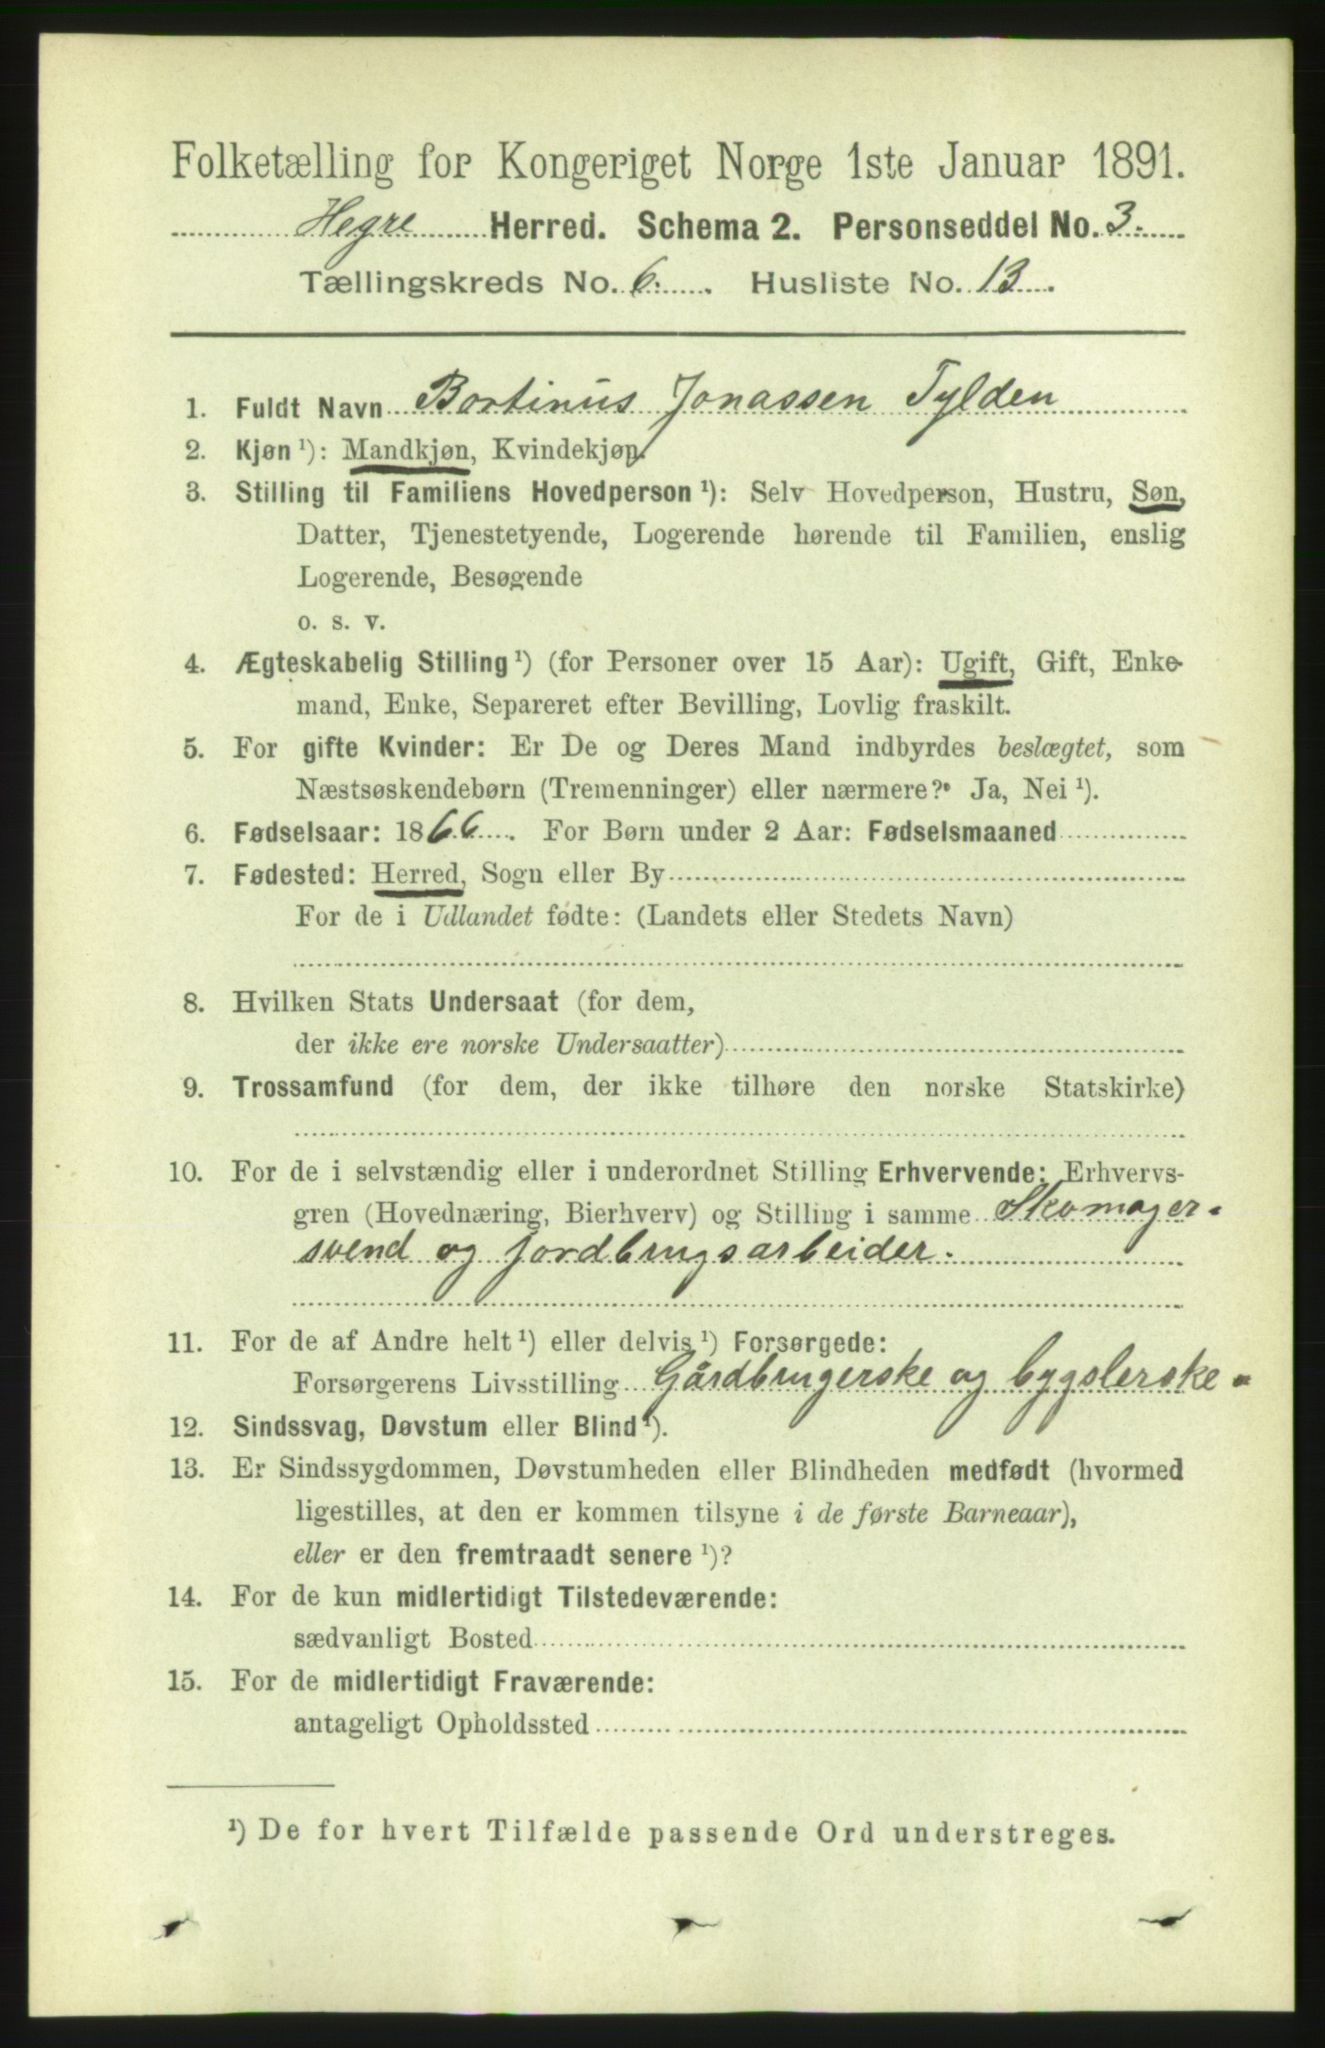 Folketælling for Kongeriget Norge 1ste Januar 1891.
Hegre Herred. Schema 2. Personseddel No. 3.
Tællingskreds No. 6. Husliste No. 13.
1. Fuldt Navn Bortinus Jonassen Tylden
2. Kjøn ¹): Mandkjøn, Kvindekjøn.
3. Stilling til Familiens Hovedperson ¹): Selv Hovedperson, Hustru, Søn,
Datter, Tjenestetyende, Logerende hørende til Familien, enslig
Logerende, Besøgende
o. s. v.
4. Ægteskabelig Stilling ¹) (for Personer over 15 Aar): Ugift, Gift, Enke-
mand, Enke, Separeret efter Bevilling, Lovlig fraskilt.
5. For gifte Kvinder: Er De og Deres Mand indbyrdes beslægtet, som
Næstsøskendebørn (Tremenninger) eller nærmere? Ja, Nei ¹).
6. Fødselsaar: 1866. For Børn under 2 Aar: Fødselsmaaned
7. Fødested: Herred, Sogn eller By
For de i Udlandet fødte: (Landets eller Stedets Navn)
8. Hvilken Stats Undersaat (for dem,
der ikke ere norske Undersaatter)
9. Trossamfund (for dem, der ikke tilhøre den norske Statskirke)
10. For de i selvstændig eller i underordnet Stilling Erhvervende: Erhvervs-
gren (Hovednæring, Bierhverv) og Stilling i samme Skomager-
svend og jordbrugsarbeider.
11. For de af Andre helt ¹) eller delvis ¹) Forsørgede:
Forsørgerens Livsstilling Gårdbrugerske og bygslerske
12. Sindssvag, Døvstum eller Blind ¹).
13. Er Sindssygdommen, Døvstumheden eller Blindheden medfødt (hvormed
ligestilles, at den er kommen tilsyne i de første Barneaar),
eller er den fremtraadt senere ¹)?
14. For de kun midlertidigt Tilstedeværende:
sædvanligt Bosted
15. For de midlertidigt Fraværende:
antageligt Opholdssted
¹) De for hvert Tilfælde passende Ord understreges.